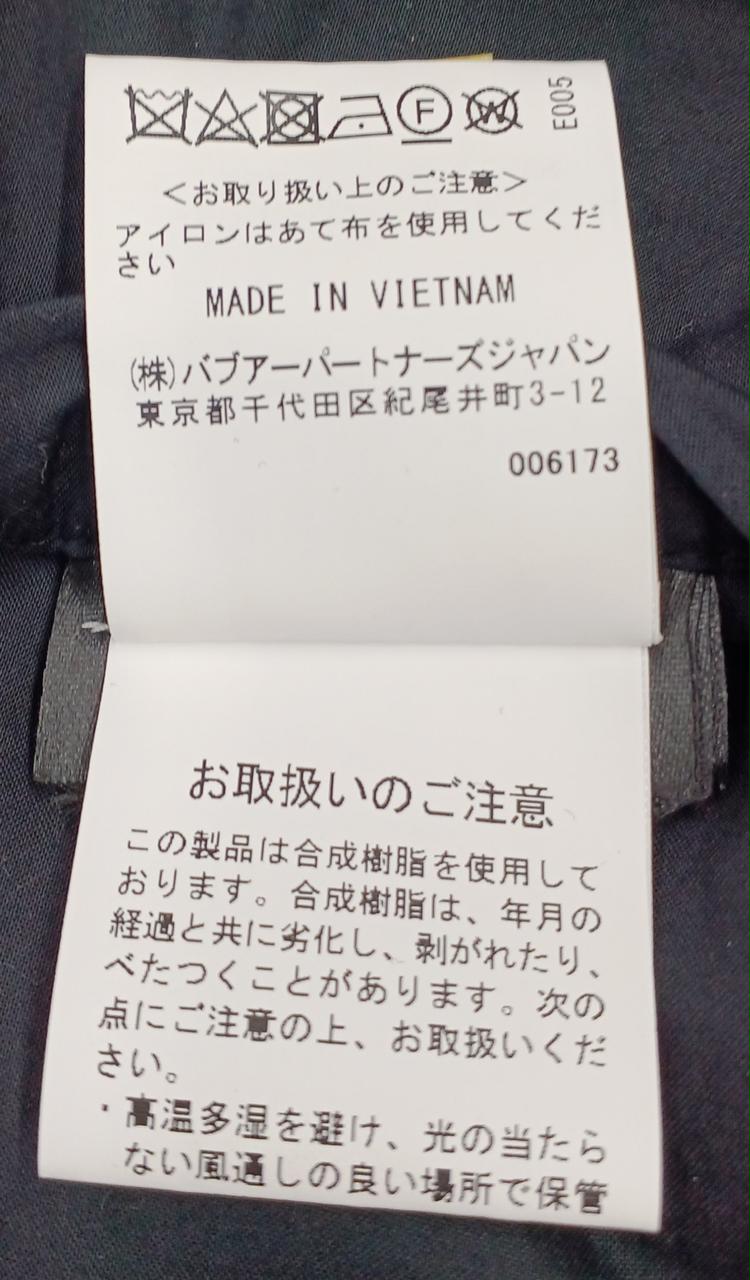 F W E005
<お取り扱い上のご注意>
アイロンはあて布を使用してくだ
さい
MADE IN VIETNAM
(株)バブアーパートナーズジャパン
東京都千代田区紀尾井町3-12
006173
お取扱いのご注意
この製品は合成樹脂を使用して
おります。合成樹脂は、年月の
経過と共に劣化し、剥がれたり、
べたつくことがあります。次の
点にご注意の上、お取扱いくだ
さい。
・高温多湿を避け、光の当たら
ない風通しの良い場所で保管